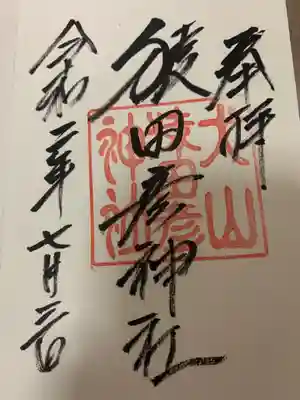 奉拝
猿田彦神社
令和二年七月二日
犬山
猿田彦
神社